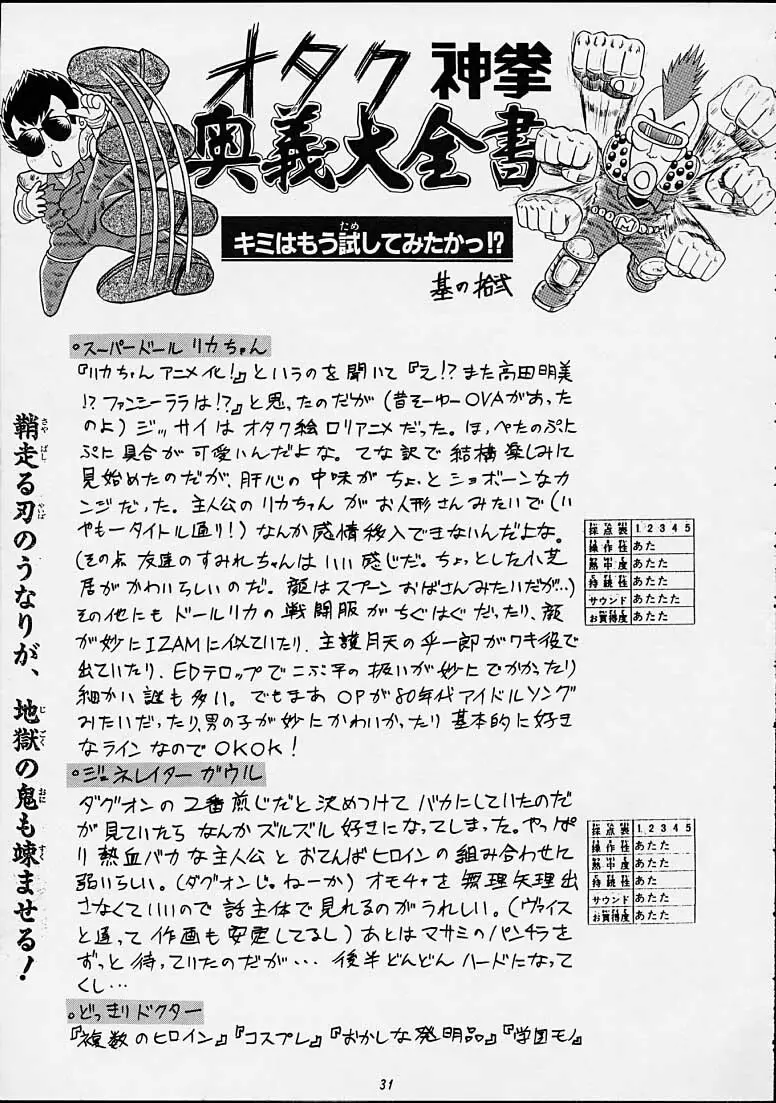 オタク 神拳
奥義大全書
キミはもう試してみたかっ!?
基の拾弐
鞘走る刃のうなりが、地獄の鬼も竦ませる!
。スーパードール リカちゃん
『リカちゃん アニメ化!』というのを聞いて『え!? また高田明美
!? ファンシーララは!?』と思ったのだが(昔そーゆーOVAがあった
のよ)ジッサイはオタク絵ロリアニメだった。ほっぺたのぷに
ぷに具合が可愛いんだよな。てな訳で結構楽しみに
見始めたのだが、肝心の中味がちょっとショボーンなカ
ンジだった。主人公のリカちゃんがお人形さんみたいで(い
やもータイトル通り!)なんか感情移入できないんだよな。
(その点友達のすみれちゃんはいい感じだ。ちょっとした小芝
居がかわいらしいのだ。顔はスプーンおばさんみたいだが…)
その他にもドールリカの戦闘服がちぐはぐだったり、顔
が妙にIZAMに似ていたり、主護月天の乎一郎がワキ役で
出ていたり、EDテロップでこぶ平の扱いが妙にでかかったり
細かい謎も多い。でもまあOPが80年代アイドルソング
みたいだったり、男の子が妙にかわいかったり基本的に好き
なラインなのでOKOK!
採点表 1 2 3 4 5
操作性 あた
熱中度 あたた
持続性 あたた
サウンド あたたた
お買得度 あたた
。ジェネレイターガウル
ダグオンの二番煎じだと決めつけてバカにしていたのだ
が見ていたらなんかズルズル好きになってしまった。やっぱ
り熱血バカな主人公とおてんばヒロインの組み合わせに
弱いらしい。(ダグオンじゃねーか)オモチャを無理矢理出
さなくていいので話主体で見れるのがうれしい。(ヴァイス
と違って作画も安定してるし)あとはマサミのパンチラを
ずっと待っていたのだが… 後半どんどんハードになって
くし…
採点表 1 2 3 4 5
操作性 あたた
熱中度 あたた
持続性 あた
サウンド あたた
お買得度 あたた
。どっきりドクター
『複数のヒロイン』『コスプレ』『おかしな発明品』『学園モノ』
31